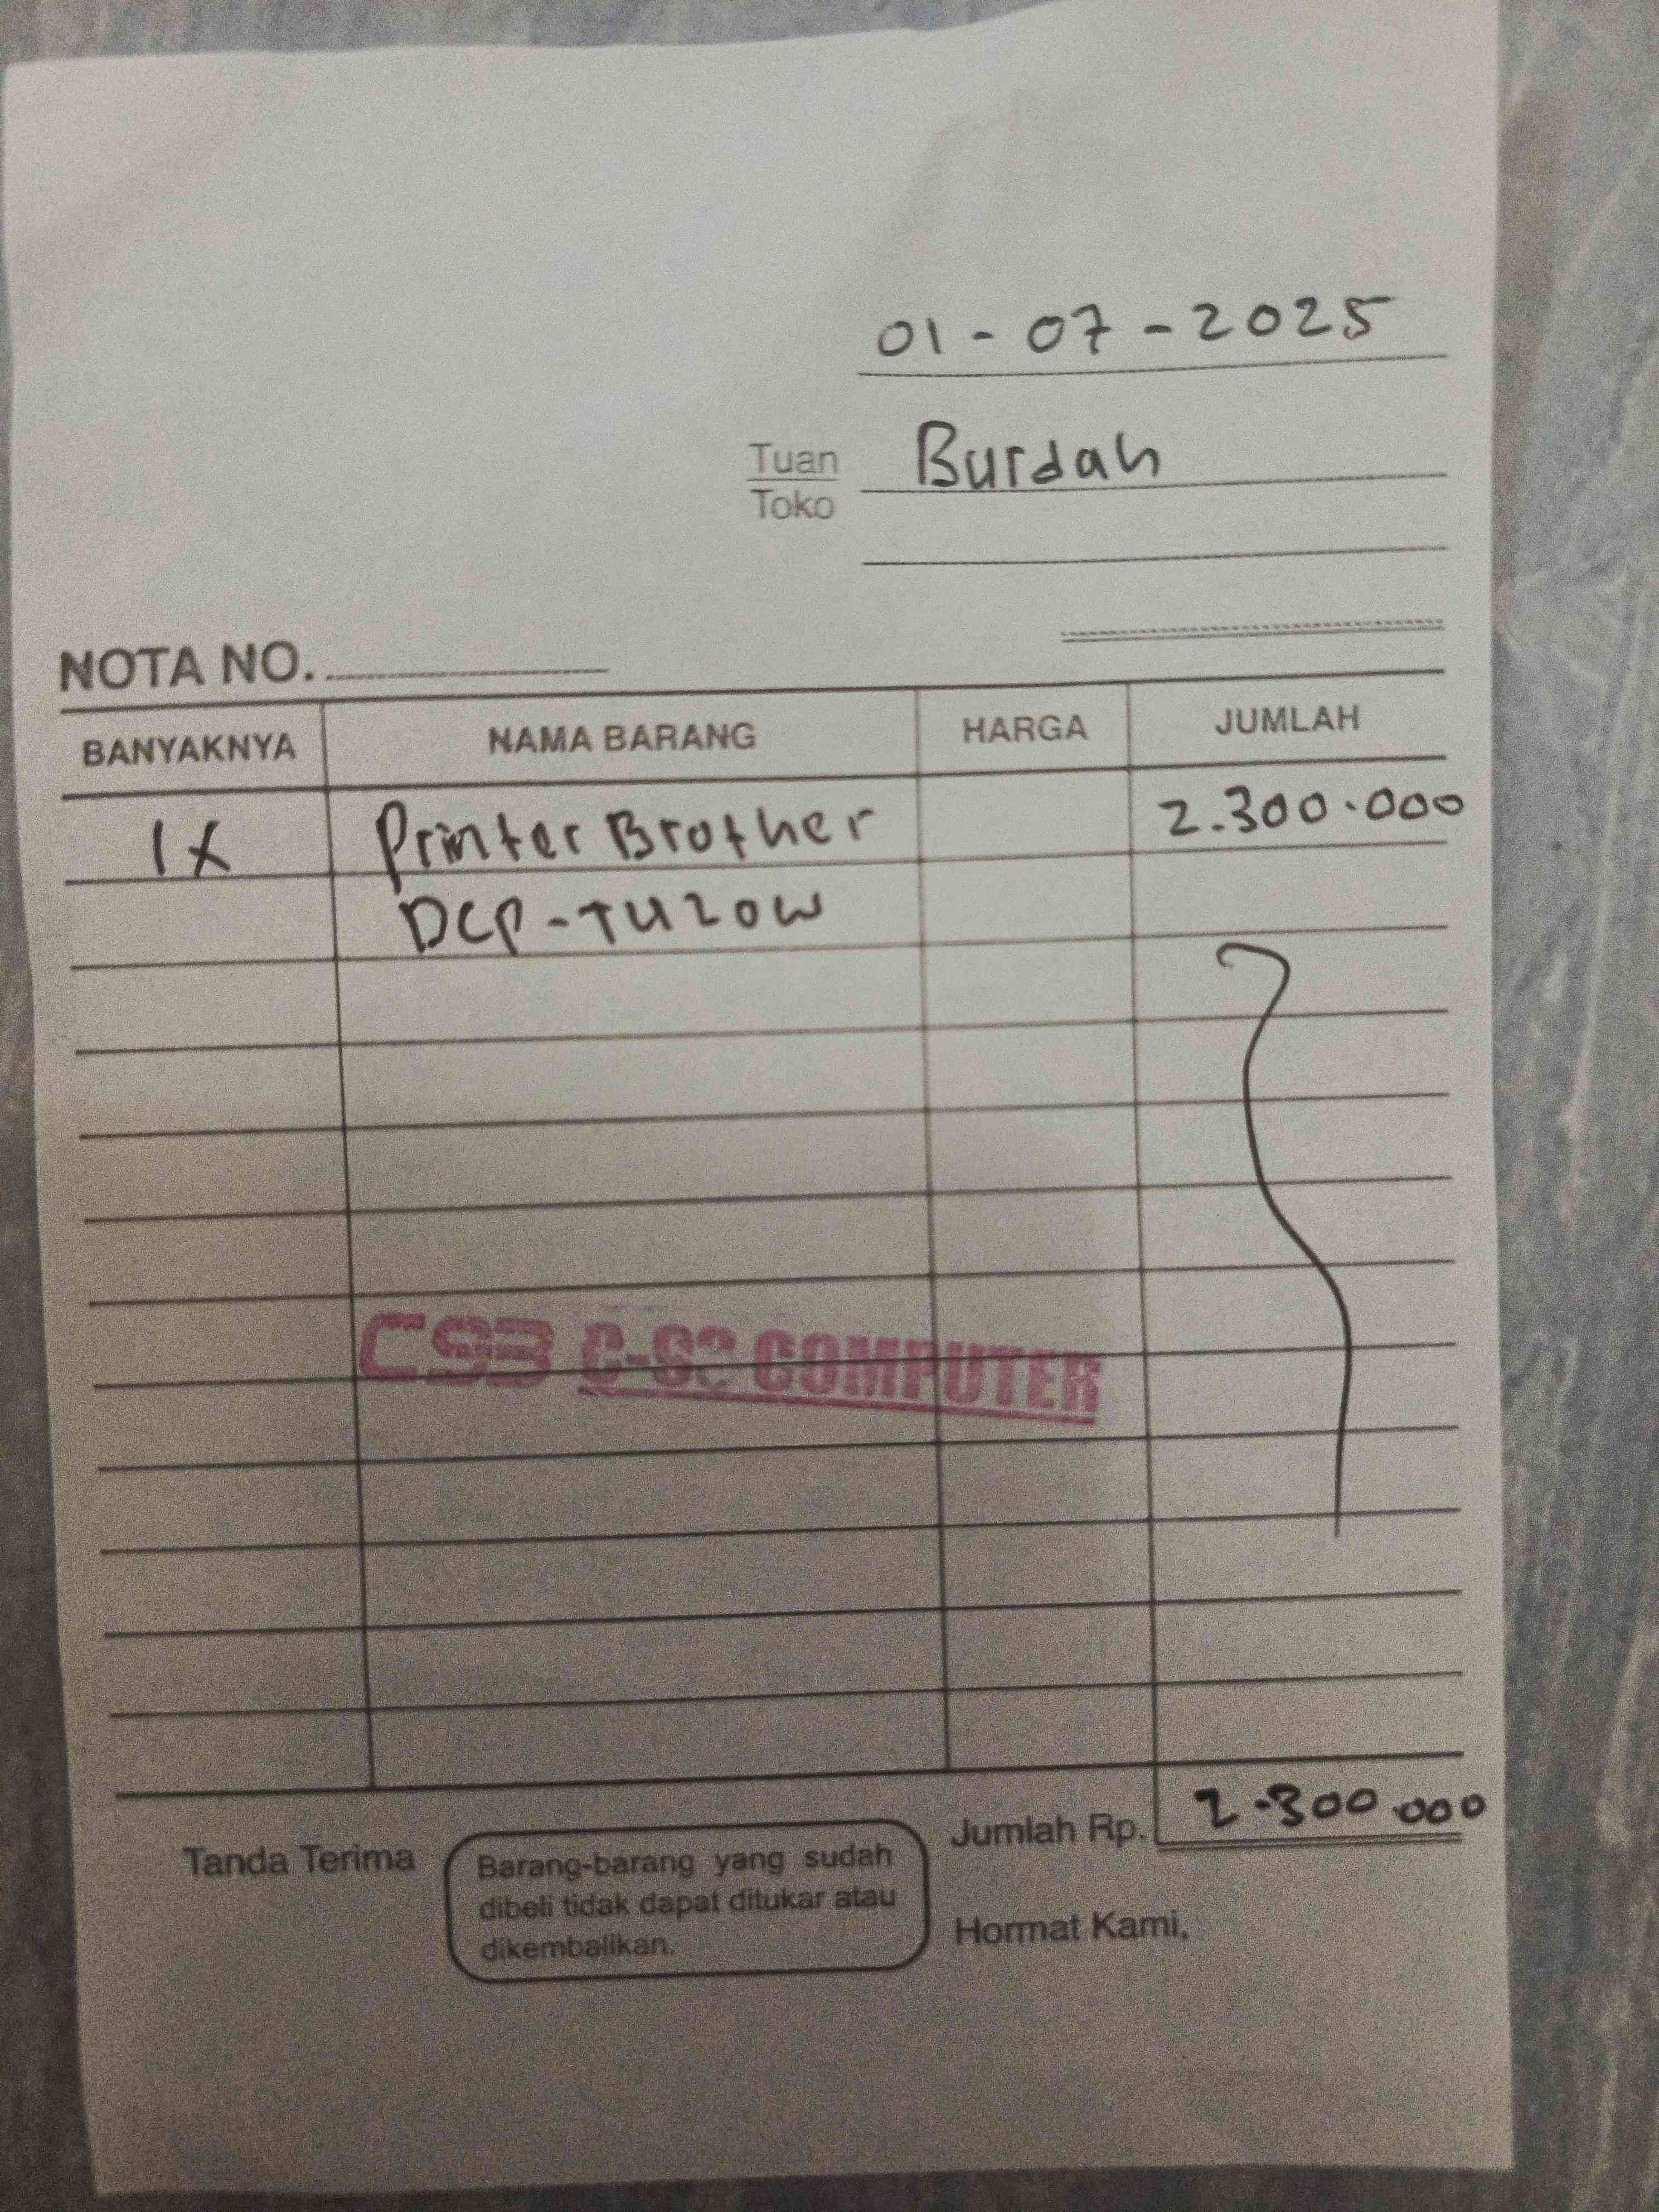 01-07-2025
Tuan Burdah
Toko
NOTA NO.
BANYAKNYA NAMA BARANG HARGA JUMLAH
1X Printer Brother 2.300.000
DCP-T420W
CSB COMPUTER
Jumlah Rp. 2.300.000
Tanda Terima
Barang-barang yang sudah
dibeli tidak dapat ditukar atau
dikembalikan.
Hormat Kami,